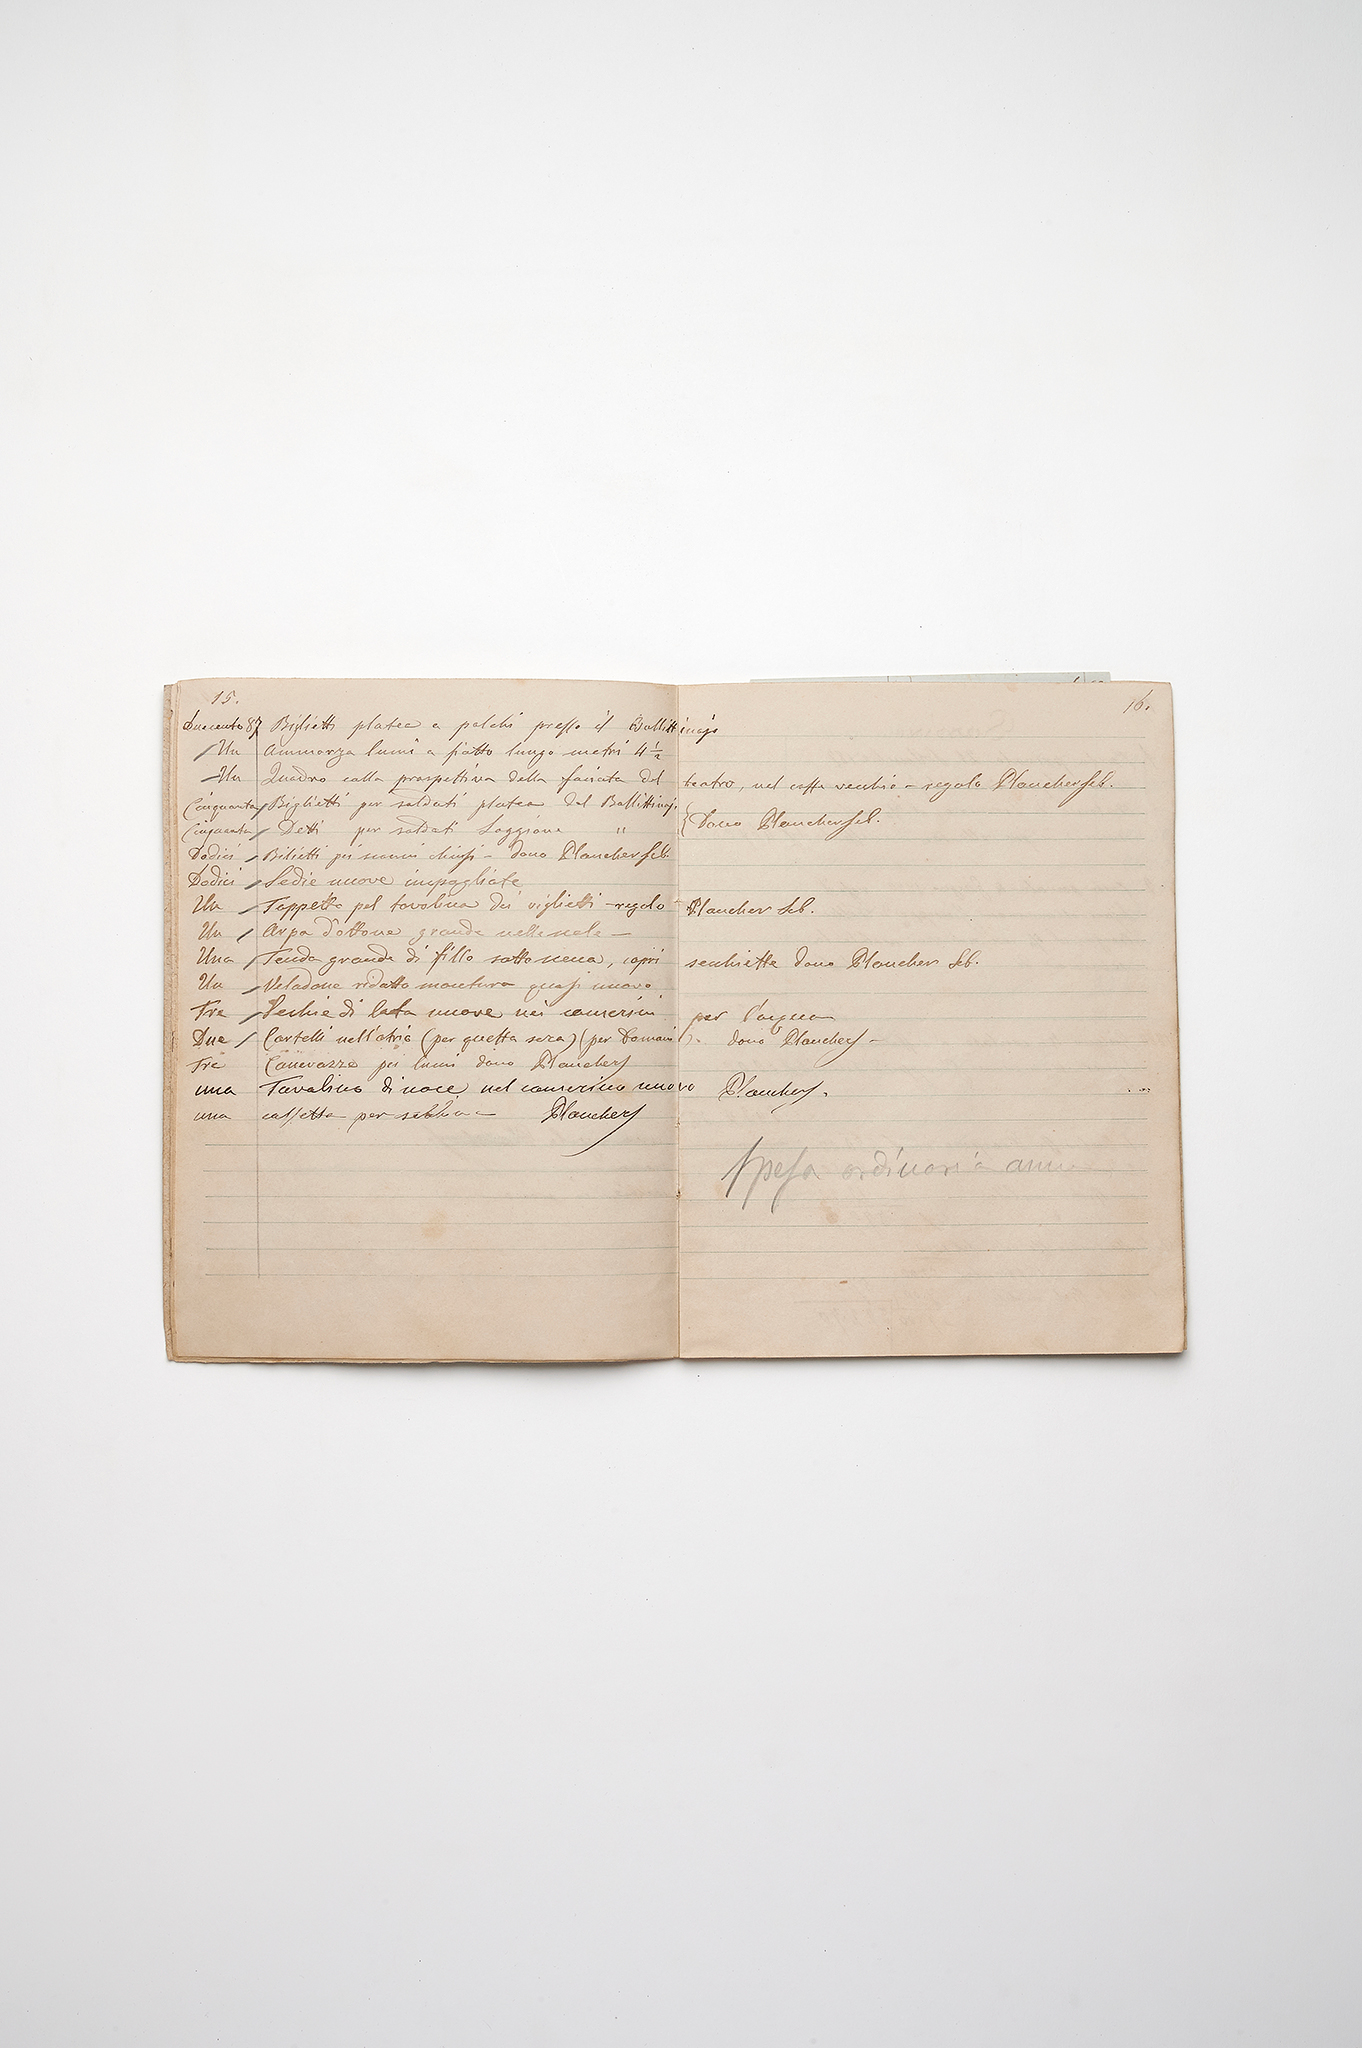 15.
16.
Duecento 87 Biglietti platea e palchi presso il Bollettinajo
Un Ammorza lumi a piatto lungo metri 4 1/2
Un Quadro colla prospettiva della facciata del teatro, nel caffè vecchio - regalo Plancher Seb.
Cinquanta Biglietti per soldati platea dal Bollettinajo
Cinquanta Detti per soldati Loggione " { Dono Plancher Seb.
Dodici Bilietti pei chiusi - dono Plancher Seb.
Dodici Sedie nuove impagliate
Un Tappetto pel tavolino dei viglietti - regalo - Plancher Seb.
Un Arpa d'ottone grande
Una Tenda grande di fillo sotto scena, copri secchiette dono Plancher Seb.
Un Veladone ridotto montura quasi nuovo
Tre Secchie di latta nuove nei camerini per l'acqua
Due Cartelli nell'atrio (per questa sera) (per Domani). dono Plancher S -
Tre Canevazze pei lumi dono Plancher S
una Tavolino di noce nel camerino nuovo Plancher S.
una cassetta per sabbia - Plancher S
Spesa ordinaria